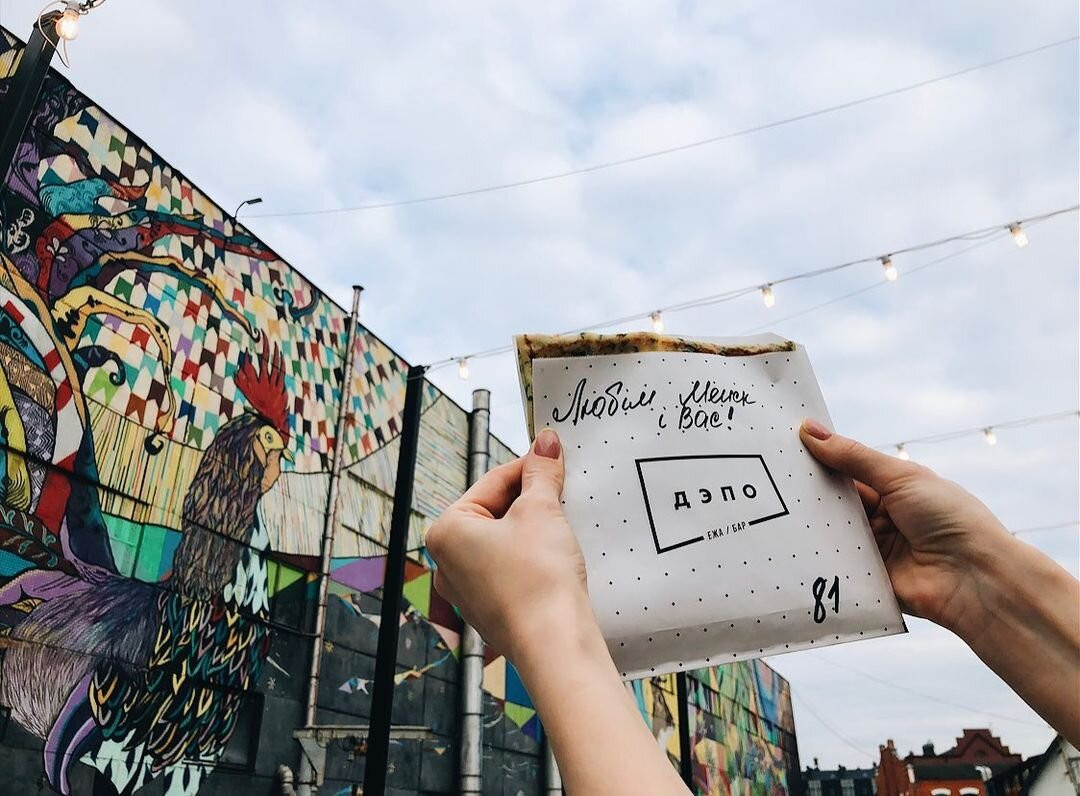 Любім Менск
і Вас!
ДЭПО
ЕЖА / БАР
81